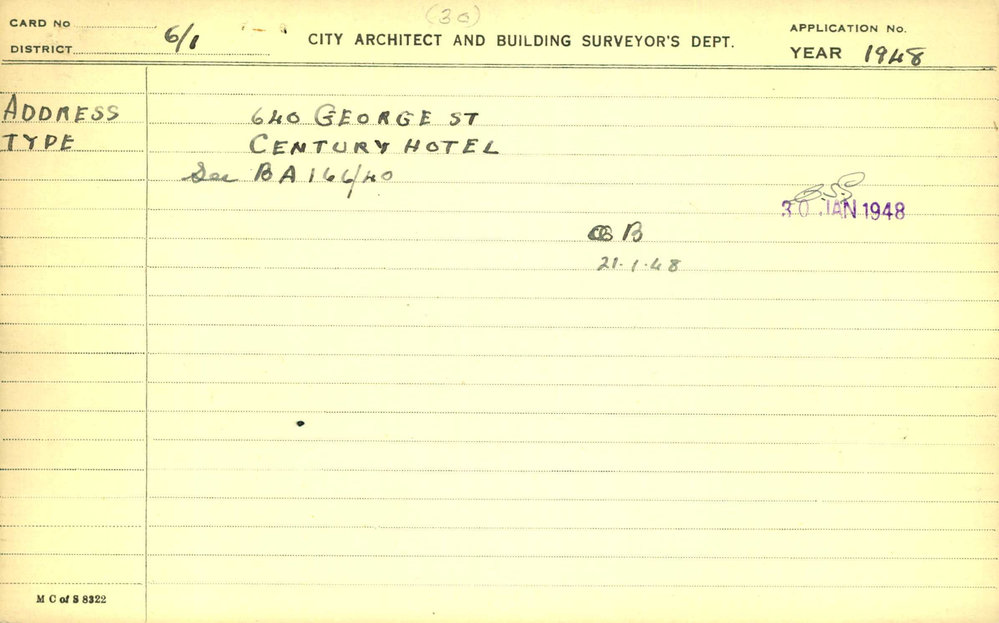 (30)
CARD No
DISTRICT 6/1
CITY ARCHITECT AND BUILDING SURVEYOR'S DEPT.
APPLICATION No.
YEAR 1948
ADDRESS 640 GEORGE ST
TYPE CENTURY HOTEL
See BA 166/40
30 JAN 1948
B
21.1.48
M C of S 8322